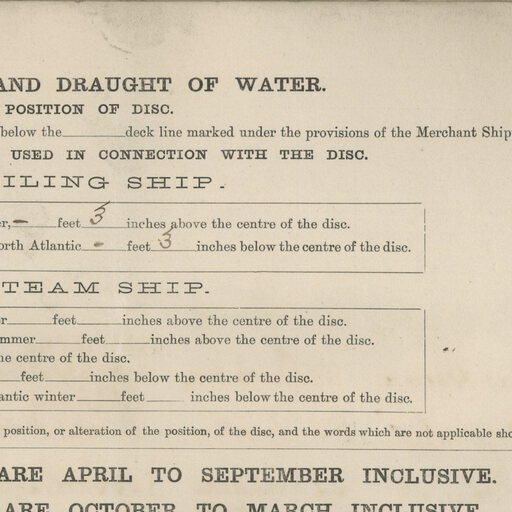 AND DRAUGHT OF WATER.
POSITION OF DISC.
below the______deck line marked under the provisions of the Merchant Ship
USED IN CONNECTION WITH THE DISC.
ILING SHIP.
er, - feet 3 inches above the centre of the disc.
orth Atlantic - feet 3 inches below the centre of the disc.
TEAM SHIP.
er______feet______inches above the centre of the disc.
mmer______feet______inches above the centre of the disc.
he centre of the disc.
______feet______inches below the centre of the disc.
antic winter______feet______inches below the centre of the disc.
position, or alteration of the position, of the disc, and the words which are not applicable sho
ARE APRIL TO SEPTEMBER INCLUSIVE.
ARE OCTOBER TO MARCH INCLUSIVE